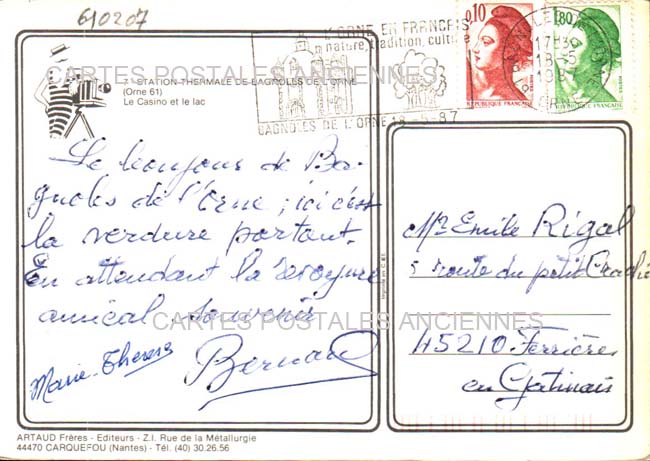 610207
L'ORNE EN FRANCE
nature, tradition, culture
0,10
1,80
REPUBLIQUE FRANÇAISE
17H30
18-5
1987
BAGNOLES DE L'ORNE 18-5-87
CARTES POSTALES ANCIENNES
STATION THERMALE DE BAGNOLES DE L'ORNE
(Orne 61)
Le Casino et le lac
Le bonjour de Ba-
gnoles de l'Orne ; ici c'est
la verdure partout.
En attendant la revoyure
amical souvenir
Marie-Thérèse
Bernard
Mr Emile Rigal
5 route du petit
45210 Ferrières
en Gatinais
CARTES POSTALES ANCIENNES
ARTAUD Frères - Editeurs - Z.I. Rue de la Métallurgie
44470 CARQUEFOU (Nantes) - Tél. (40) 30.26.56